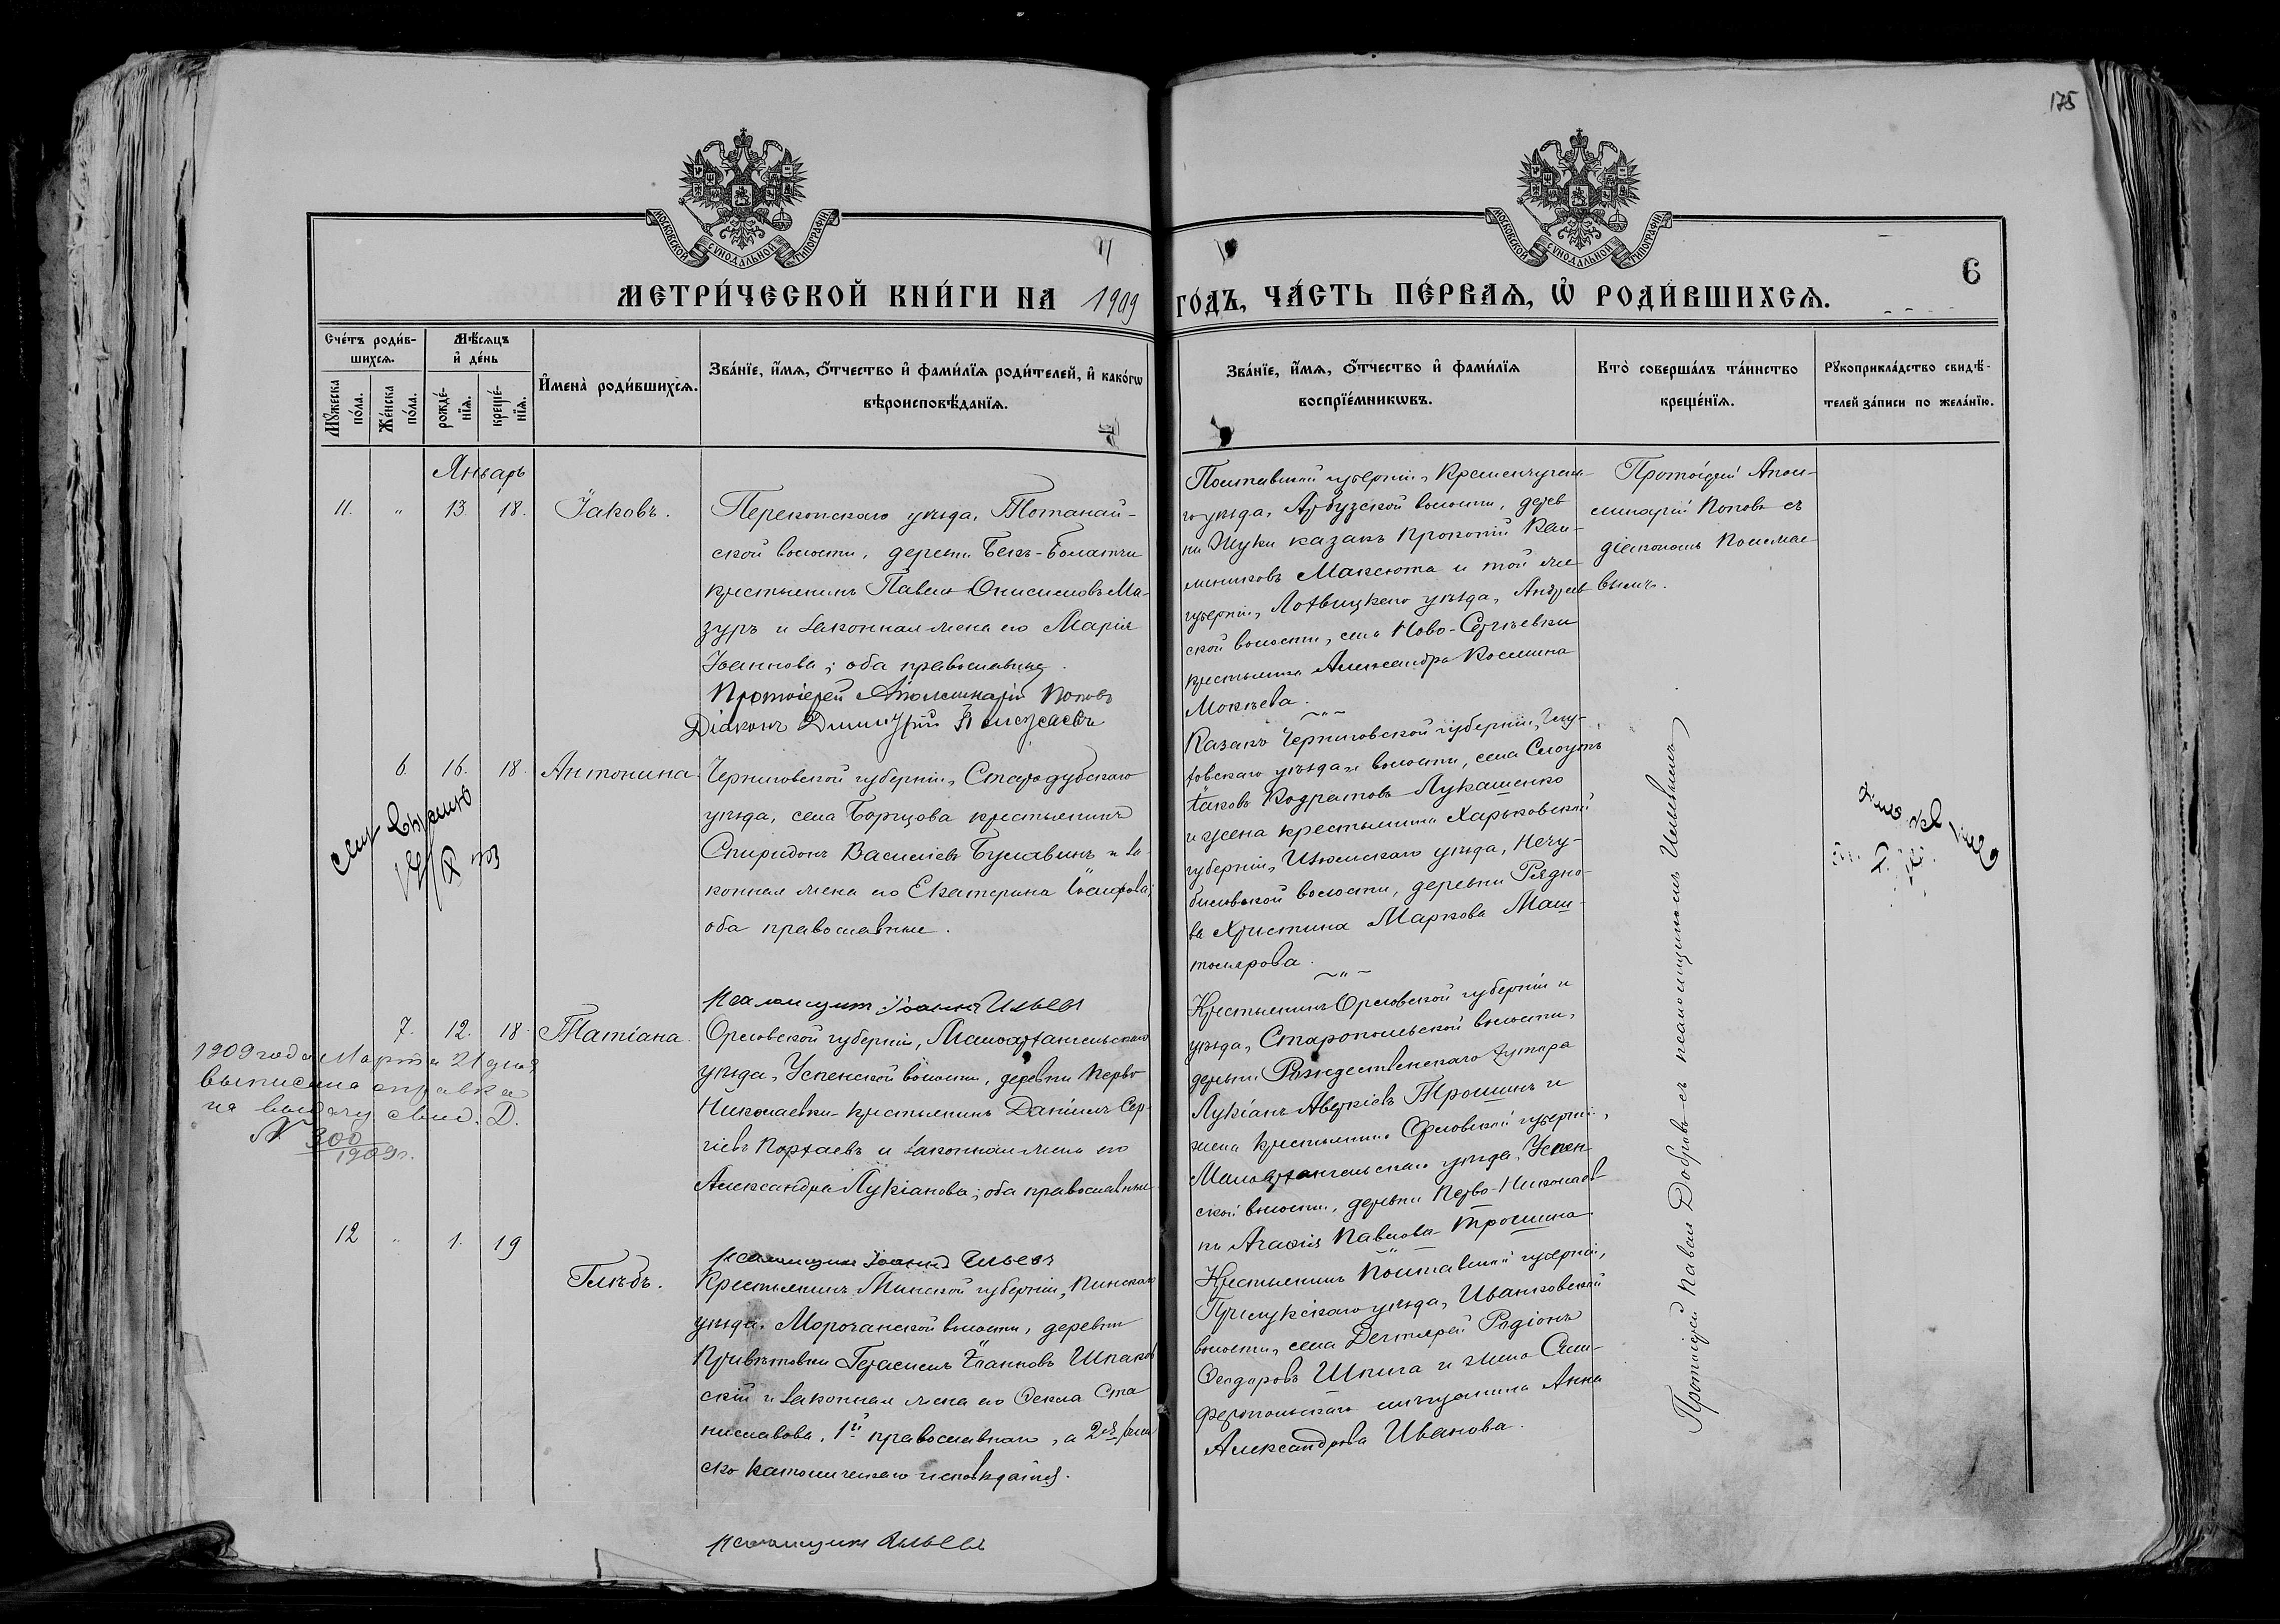 175
МОСКОВСКОЙ СУНОДАЛЬНОЙ ТИПОГРАФІИ
МОСКОВСКОЙ СУНОДАЛЬНОЙ ТИПОГРАФІИ
6
МЕТРИ́ЧЕСКОЙ КНИ́ГИ НА 1909 ГО́ДЪ, ЧА́СТЬ ПЕ́РВАѦ, Ѡ҆ РОДИ́ВШИХСѦ.
Сче́тъ роди́в-
шихсѧ.
Мꙋ́жеска
по́ла.
Же́нска
по́ла.
Мѣ́сѧцъ
и҆ де́нь
рожде́-
нїѧ.
креще́-
нїѧ.
И҆мена̀ роди́вшихсѧ.
Зва́нїе, и҆́мѧ, ѻ҆́тчество и҆ фами́лїѧ роди́телей, и҆ како́гѡ
вѣроисповѣ́данїѧ.
Зва́нїе, и҆́мѧ, ѻ҆́тчество и҆ фами́лїѧ
воспрїе́мникѡвъ.
Кто̀ соверша́лъ та́инство
креще́нїѧ.
Рꙋкоприкла́дство свидѣ́-
телей за́писи по жела́нїю.
Январь
11. " 13. 18. Іаковъ.
Перекопскаго уѣзда, Тотанай-
ской волости, деревни Бекъ-Болатчи
крестьянинъ Павелъ Онисимовъ Ма-
зуръ и законная жена его Марія
Іоаннова; оба православные.
Протоіерей Аполлинарій Поповъ
Діаконъ Димитрій
Полтавской губерніи, Кременчугска-
го уѣзда, Арбузской волости, дерев
ни Жуки казакъ Прокопій
Максюта и той же
губерніи, Лохвицкаго уѣзда, Андреев
ской волости, села Ново-Сергѣевки
крестьянка Александра Космина
Мокѣева.
Протоіерей Апол-
линарій Поповъ съ
діакономъ
вымъ.
6. 16. 18. Антонина.
Черниговской губерніи, Стародубскаго
уѣзда, села Борщова крестьянинъ
Спиридонъ Василіевъ Булавинъ и за-
конная жена его Екатерина Іосифова;
оба православные.
Псаломщикъ Іоаннъ Ильевъ
Казакъ Черниговской губерніи, Глу-
ховскаго уѣзда и волости, села Слоутъ
Іаковъ Кодратовъ Лукашенко
и жена крестьянина Харьковской
губерніи, Изюмскаго уѣзда, Нечу-
биловской волости, деревни Рядно-
ва Христина Маркова Маш-
толярова.
7. 12. 18. Татіана.
1909 года Марта 21 дня
выписана справка
на выдачу свид. Д.
№ 300
1909 г.
Орловской губерніи, Малоархангельскаго
уѣзда, Успенской волости, деревни Перво
Николаевки крестьянинъ Даніилъ Сер-
гіевъ Порхаевъ и законная жена его
Александра Лукіанова; оба православные
Псаломщикъ Іоаннъ Ильевъ
Крестьянинъ Орловской губерніи и
уѣзда, Старопольской волости,
деревни Рождественскаго хутора
Лукіанъ Аверкіевъ Трошинъ и
жена крестьянина Орловской губерніи,
Малоархангельскаго уѣзда, Успен
ской волости, деревни Перво-Николаев-
ки Агафія Павлова Трошина
12 " 1. 19
Глѣбъ.
Крестьянинъ Минской губерніи, Пинскаго
уѣзда, Морочанской волости, деревни
Привѣтовки Герасимъ Іоанновъ Шпаков
скій и законная жена его Ѳекла Ста
ниславова, 1й православнаго, а 2я рим
ско католическаго исповѣданія.
Псаломщикъ Ильевъ
Крестьянинъ Полтавской губерніи,
Прилукскаго уѣзда, Иванковской
волости, села Дегтярей Родіонъ
Ѳеодоровъ Шпига и жена Сим-
феропольскаго мѣщанина Анна
Александрова Иванова.
Протоіерей Павелъ Добровъ съ псаломщикомъ Ильевымъ